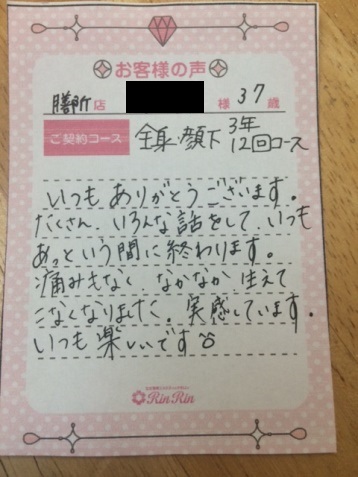 お客様の声
膳所店 様 37歳
ご契約コース 全身・顔下 3年
12回コース
いつもありがとうございます。
たくさん、いろんな話をして、いつも
あっという間に終わります。
痛みもなく、なかなか生えて
こなくなりました。実感しています。
いつも楽しいです
RinRin